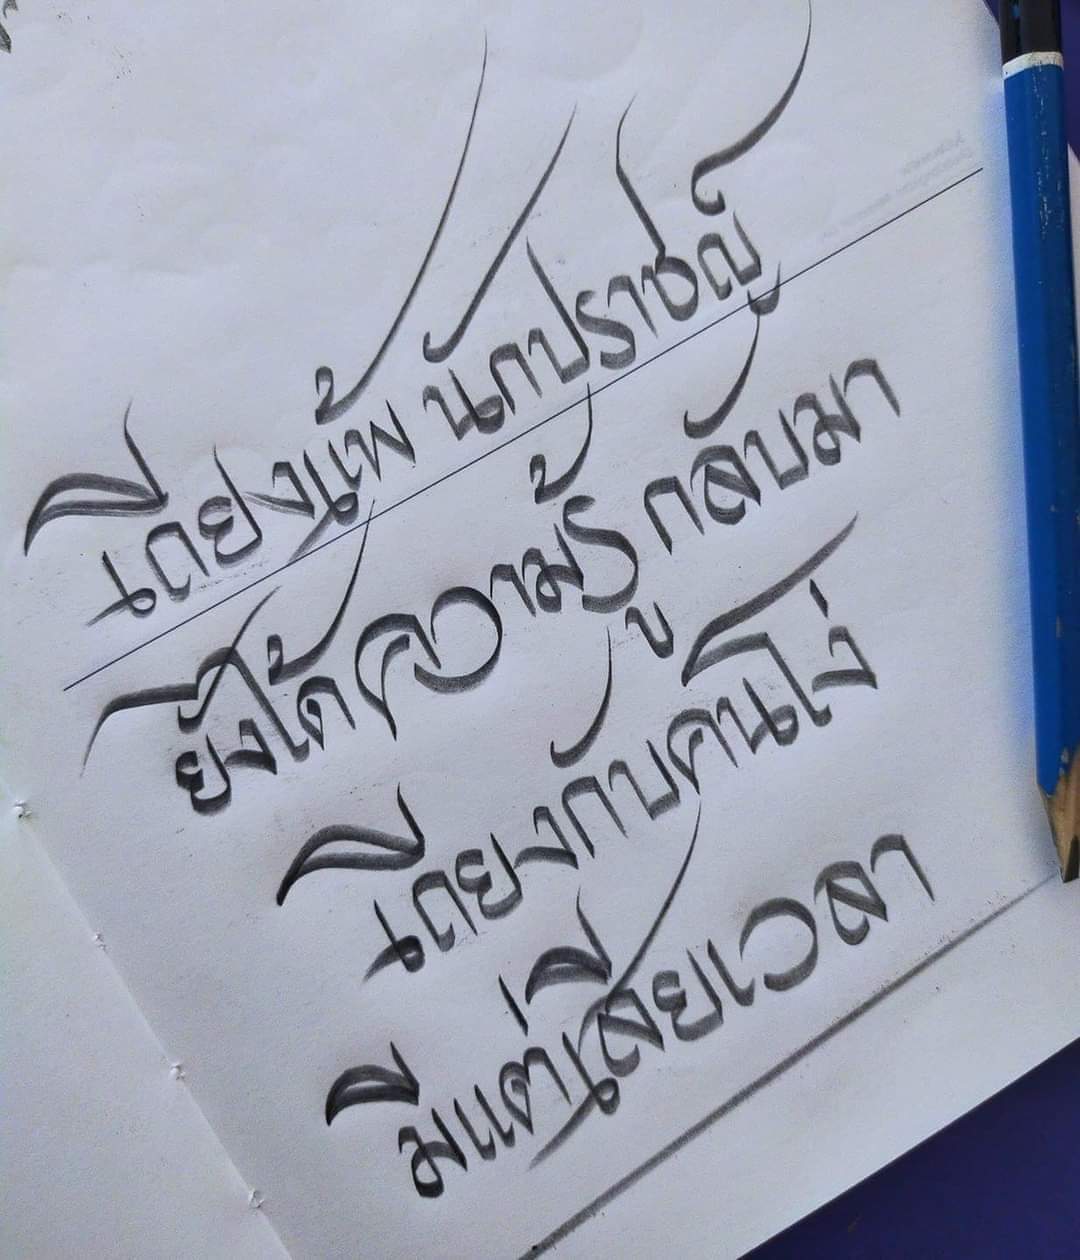 เถียงแพ้ นักปราชญ์
ยังได้ความรู้ กลับมา
เถียงกับคนโง่
มีแต่เสียเวลา